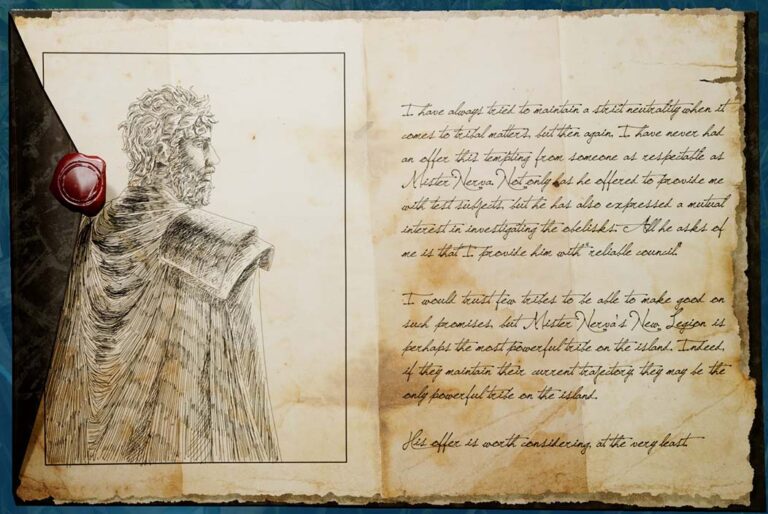 I have always tried to maintain a strict neutrality when it
comes to tribal matters, but then again, I have never had
an offer this tempting from someone as respectable as
Mister Nerva. Not only has he offered to provide me
with test subjects, but he has also expressed a mutual
interest in investigating the obelisks. All he asks of
me is that I provide him with "reliable council."
I would trust few tribes to be able to make good on
such promises, but Mister Nerva's New Legion is
perhaps the most powerful tribe on the island. Indeed,
if they maintain their current trajectory, they may be the
only powerful tribe on the island.
His offer is worth considering, at the very least.